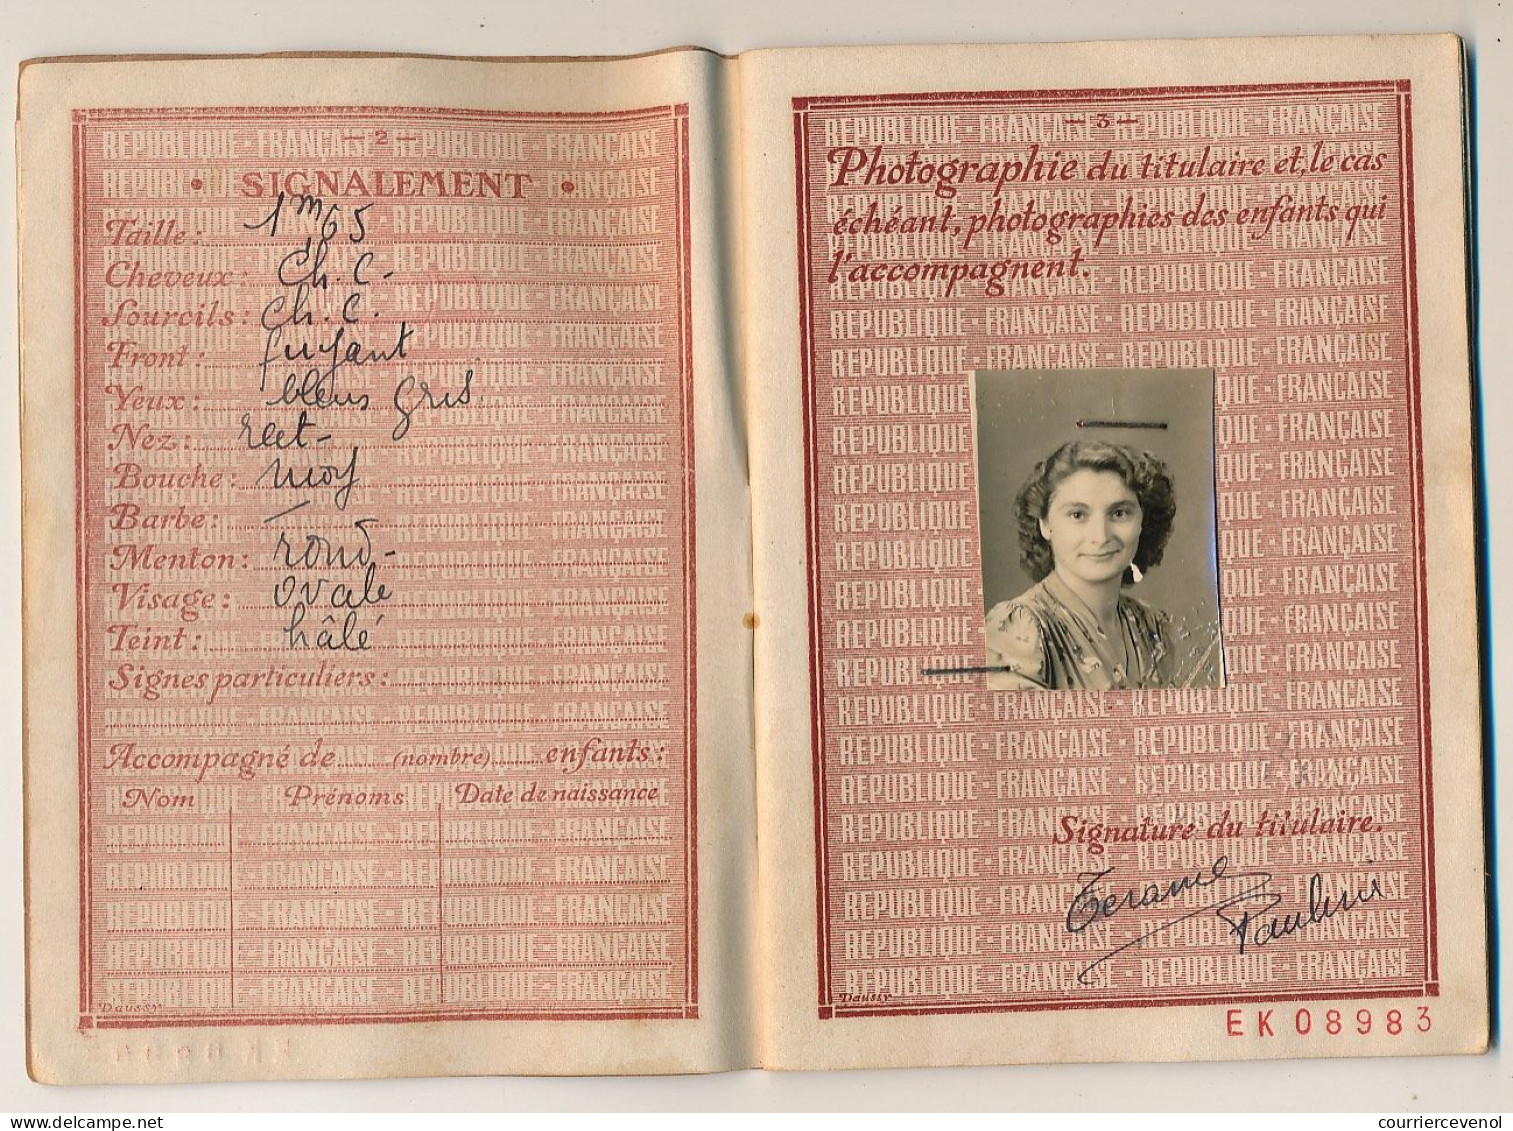 — 2 —
• SIGNALEMENT •
Taille: 1m65
Cheveux: Ch. C-
Sourcils: Ch. C.
Front: fuyant
Yeux: bleus gris.
Nez: rect-
Bouche: moy
Barbe: —
Menton: rond-
Visage: ovale
Teint: hâlé
Signes particuliers:
Accompagné de (nombre) enfants:
Nom Prénoms Date de naissance
Daussy
— 3 —
Photographie du titulaire et, le cas
échéant, photographies des enfants qui
l'accompagnent.
Signature du titulaire.
Pauline
Daussy
EK08983
courriercevenol